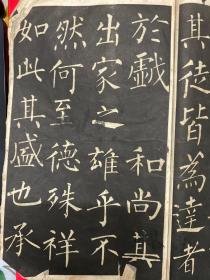 其徒皆為達者
於戲和尚其
出家之雄乎不
然何至德殊祥
如此其盛也承